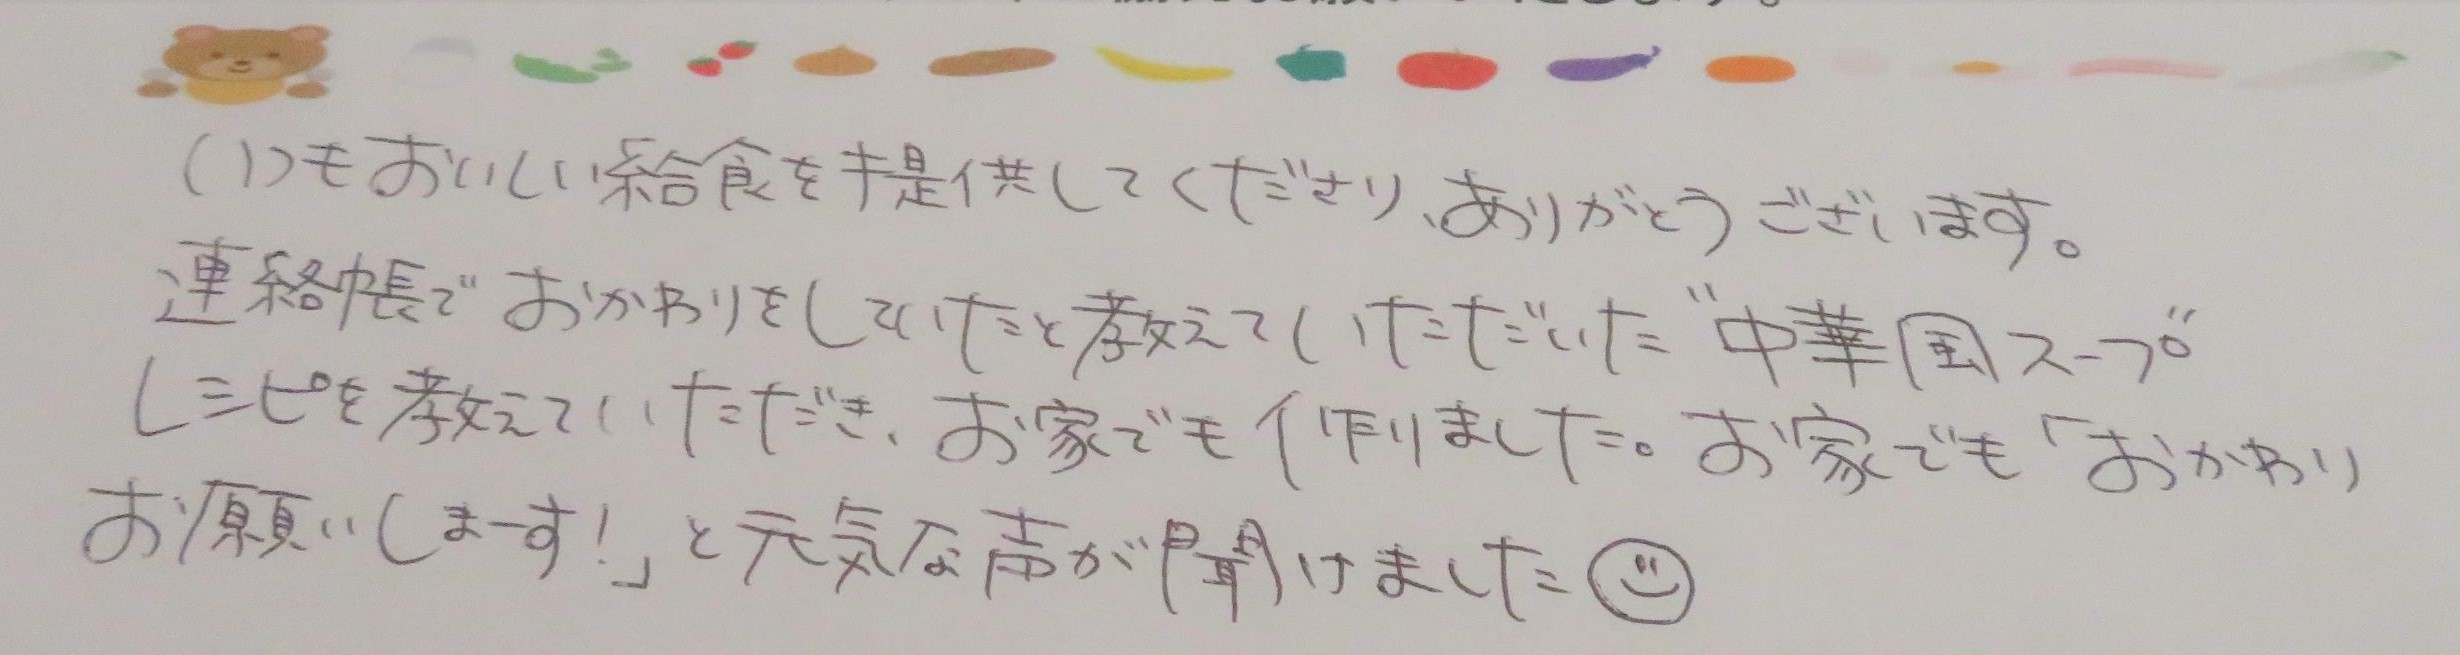 いつもおいしい給食を提供してくださり、ありがとうございます。
連絡帳でおかわりをしていたと教えていただいた"中華風スープ"
レシピを教えていただき、お家でも作りました。お家でも「おかわり
お願いしまーす!」と元気な声が聞けました